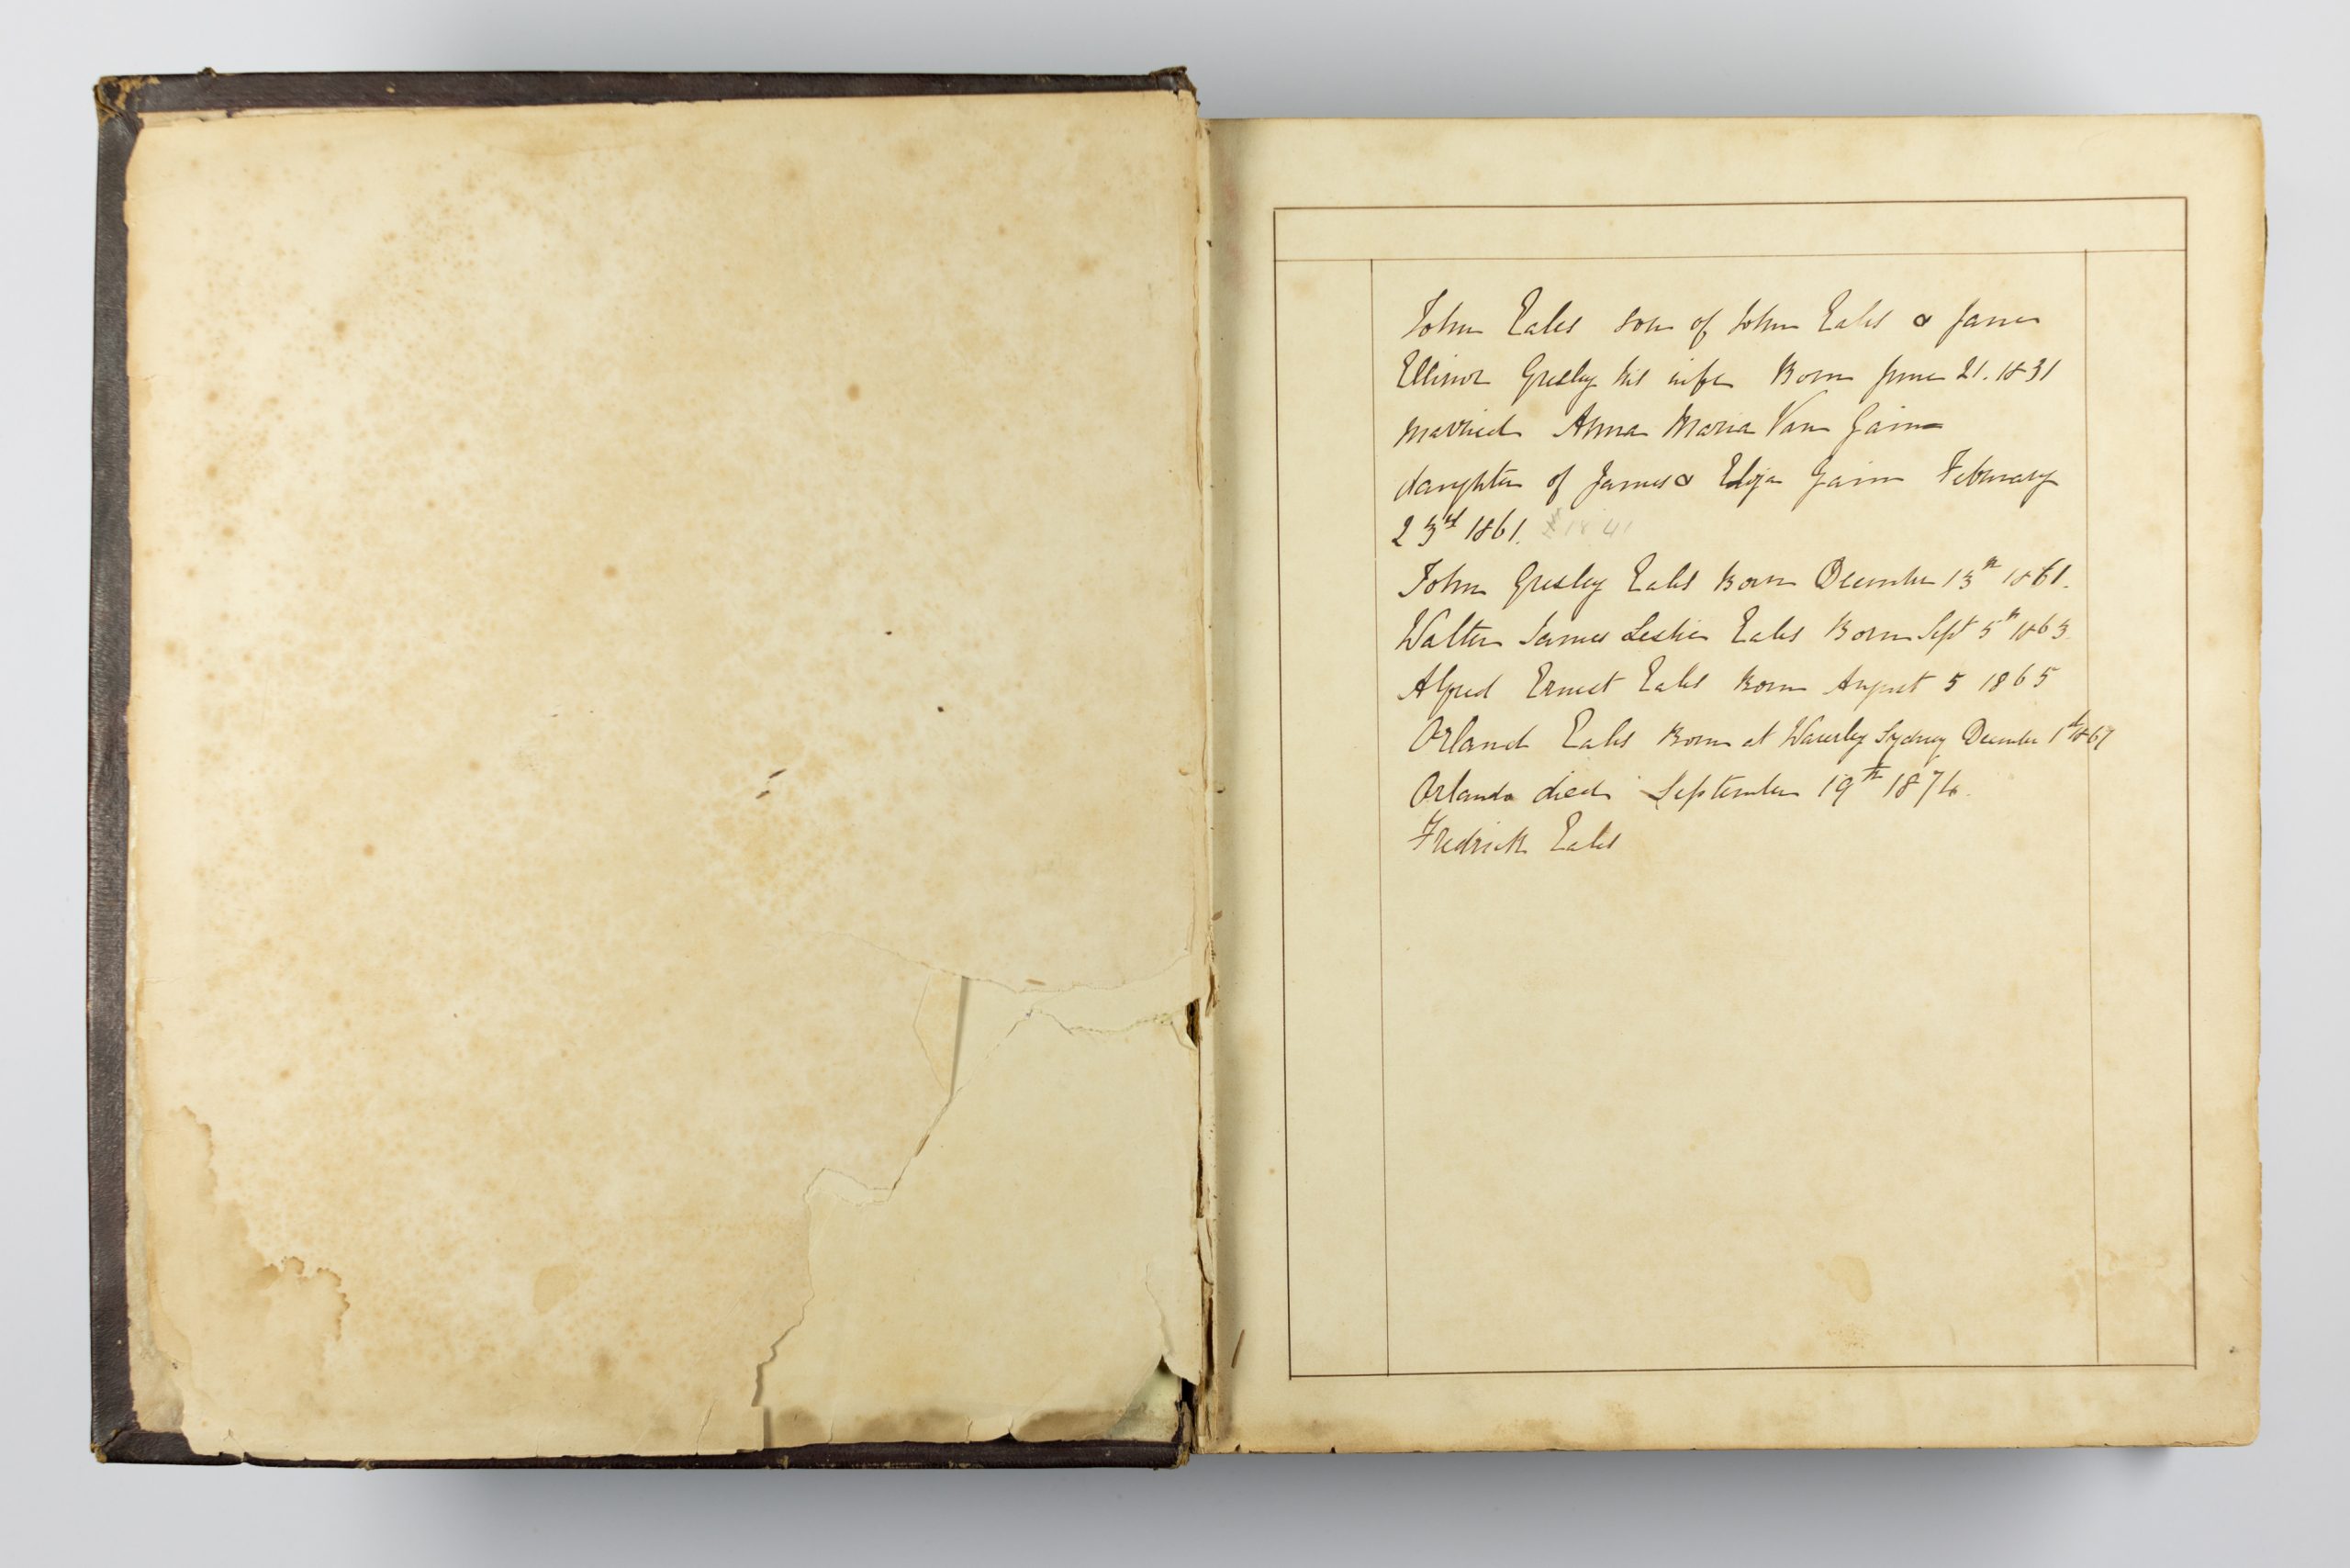 John Eales son of John Eales & Jane
Ellinor Gresley his wife Born June 21. 1831
Married Anna Maria Van
daughter of James & Eliza February
23rd 1861. 1841
John Gresley Eales Born December 13th 1861.
Walter James Leslie Eales Born Sept 5th 1863
Alfred Ernest Eales Born August 5 1865
Orland Eales Born at Waverley Sydney December 1st 1867
Orlando died September 19th 1874.
Fredrick Eales